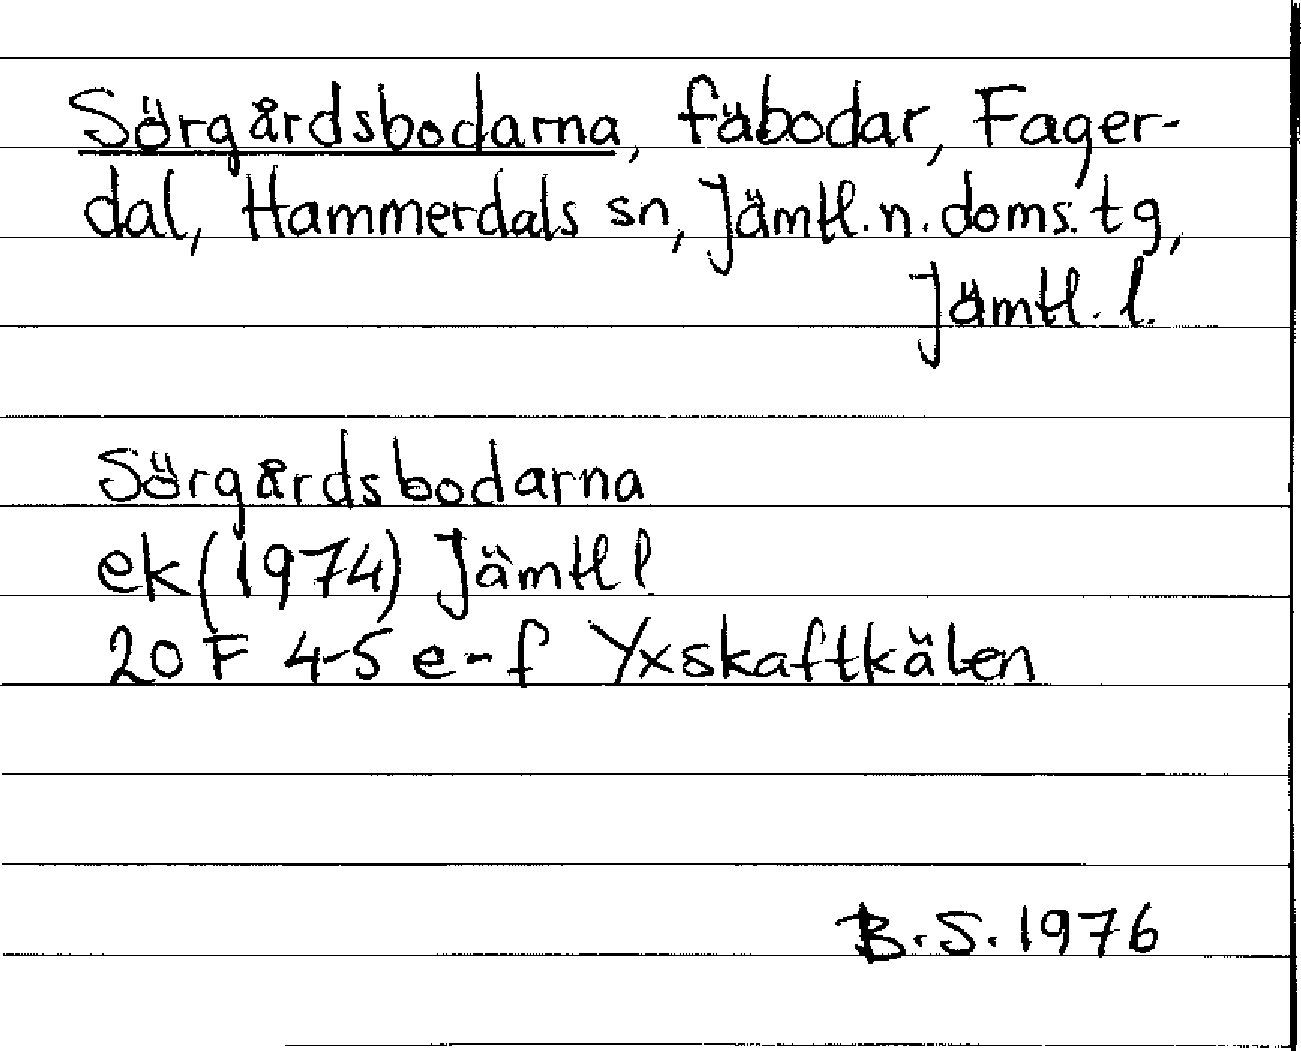 Sörgårdsbodarna, fäbodar, Fager-
dal, Hammerdals sn, Jämtl. n. doms. tg,
Jämtl. l.
Sörgårdsbodarna
ek (1974) Jämtl l
20 F 4-5 e-f Yxskaftkälen
B.S. 1976